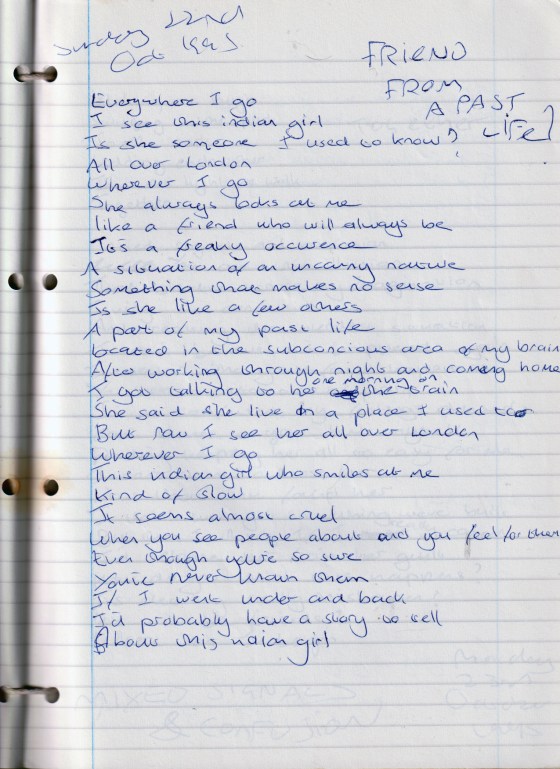 Sunday 22nd
Oct 1995
FRIEND
FROM
A PAST
LIFE?
Everywhere I go
I see this indian girl
Is she someone I used to know?
All over London
Wherever I go
She always looks at me
like a friend who will always be
It's a freaky occurence
A situation of an uncanny nature
Something that makes no sense
Is she like a few others
A part of my past life
located in the subconcious area of my brain
After working through night and coming home
I got talking to her one morning on the train
She said she live in a place I used to
But now I see her all over London
Wherever I go
This indian girl who smiles at me
Kind of slow
It seems almost cruel
When you see people about and you feel for them
Even though you're so sure
You've never known them
If I went under and back
I'd probably have a story to tell
About this indian girl
MIXED SIGNALS
& CONFUSION